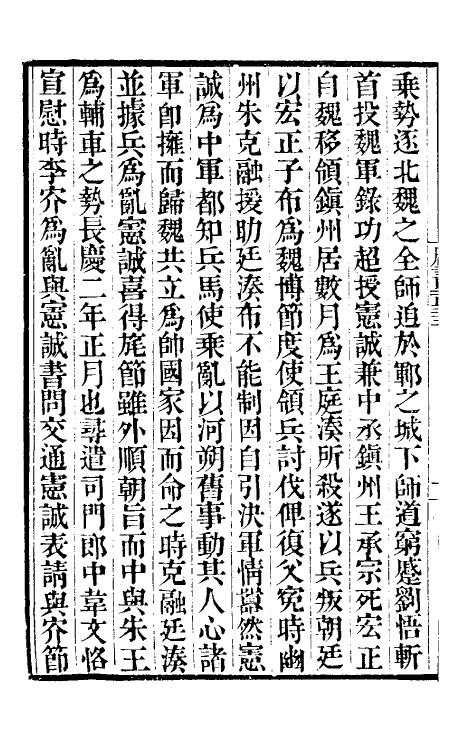 乘勢逐北魏之全師迫於鄆之城下師道窮蹙劉悟斬
首投魏軍錄功超授憲誠兼中丞鎭州王承宗死宏正
自魏移領鎭州居數月爲王庭湊所殺遂以兵叛朝廷
以宏正子布爲魏博節度使領兵討伐俾復父寃時幽
州朱克融援助廷湊布不能制因自引決軍情囂然憲
誠爲中軍都知兵馬使乘亂以河朔舊事動其人心諸
軍卽擁而歸魏共立爲帥國家因而命之時克融廷湊
並據兵爲亂憲誠喜得旄節雖外順朝旨而中與朱王
爲輔車之勢長慶二年正月也尋遣司門郎中韋文恪
宣慰時李㝏爲亂與憲誠書問交通憲誠表請與㝏節